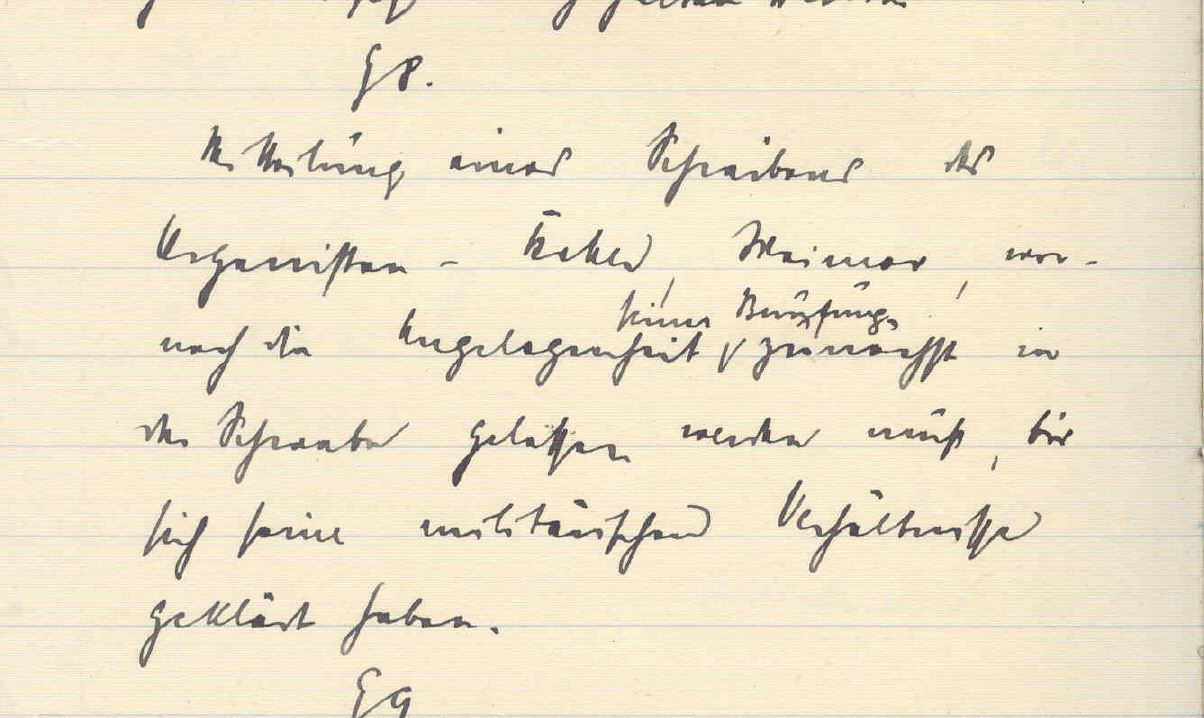 § 8.
Mitteilung eines Schreibens des
Organisten - Weimar, wo-
nach die Angelegenheit seiner Berufung zunächst in
der Schwebe gelassen werden muß, bis
sich seine militärischen Verhältnisse
geklärt haben.
§ 9